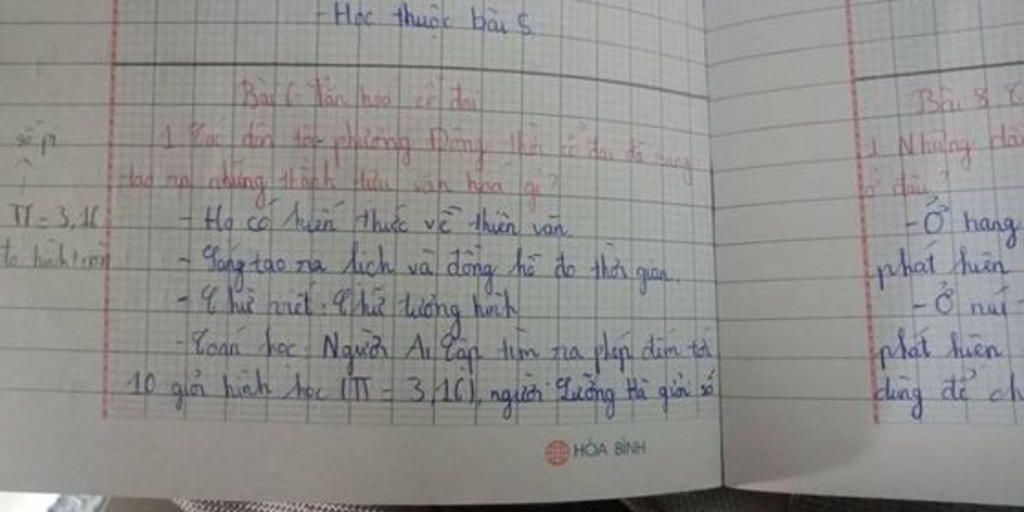 - Học thuộc bài 5
Bài 6 Văn hoá cổ đại
số pi
1 Các dân tộc phương Đông thời cổ đại đã sáng
tạo ra những thành tựu văn hoá gì?
π = 3,16
- Họ có kiến thức về thiên văn
- Sáng tạo ra lịch và đồng hồ đo thời gian.
- Chữ viết: Chữ tượng hình
- Toán học: Người Ai Cập tìm ra phép đếm tới
10 giỏi hình học (π = 3,16), người Lưỡng Hà giỏi số
HÒA BÌNH
Bài 8
1 Những
ở đâu?
- Ở hang
phát hiện
- Ở núi
phát hiện
dùng để